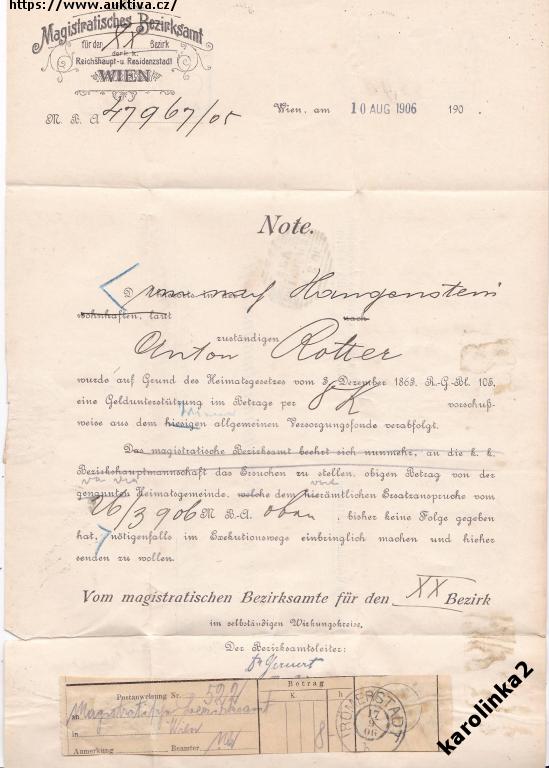 https://www.auktiva.cz/
Magistratisches Bezirksamt
für den XX Bezirk
der k. k.
Reichshaupt- u. Residenzstadt
WIEN
M. B. A. 47967/05
Wien, am 10 AUG 1906 190 .
Note.
D
Hangenstein
wohnhaften, laut nach
zuständigen
Anton Rotter
wurde auf Grund des Heimatsgesetzes vom 3. Dezember 1863, R.-G.-Bl. 105,
eine Geldunterstützung im Betrage per 8 K vorschuß-
weise aus dem hiesigen allgemeinen Versorgungsfonde verabfolgt.
Das magistratische Bezirksamt beehrt sich nunmehr, an die k. k.
Bezirkshauptmannschaft das Ersuchen zu stellen, obigen Betrag von der
genannten Heimatsgemeinde, welche dem hierämtlichen Ersatzanspruche vom
26/3 906 M. B. A. oben , bisher keine Folge gegeben
hat, nötigenfalls im Exekutionswege einbringlich machen und hieher
senden zu wollen.
Vom magistratischen Bezirksamte für den XX Bezirk
im selbständigen Wirkungskreise.
Der Bezirksamtsleiter:
Betrag
Postanweisung Nr. 522
K. h
an Magistratisches Bezirksamt
in Wien
8 -
Anmerkung Beamter
RÖMERSTADT
karolinka2